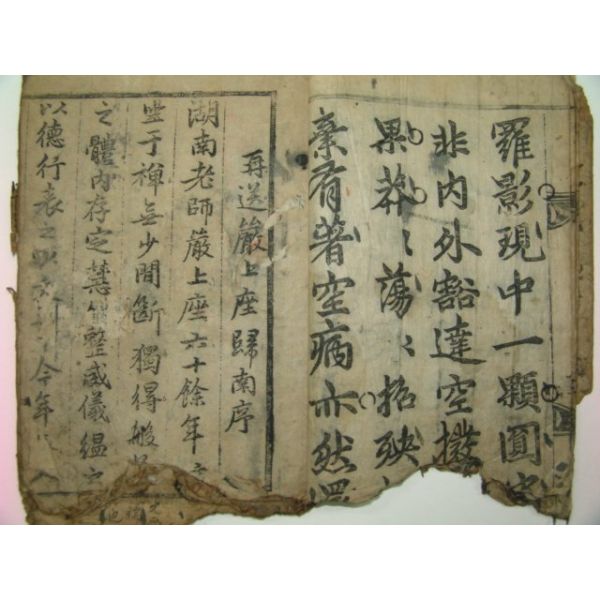 羅影現中一顆圓
非內外豁達空撥
果莽〻蕩〻招殃
棄有著空病亦然
再送嚴上座歸南序
湖南老師嚴上座六十餘年
坐于禪無少間斷獨得般
之體內存定慧整威儀縕之
以德行表之今年